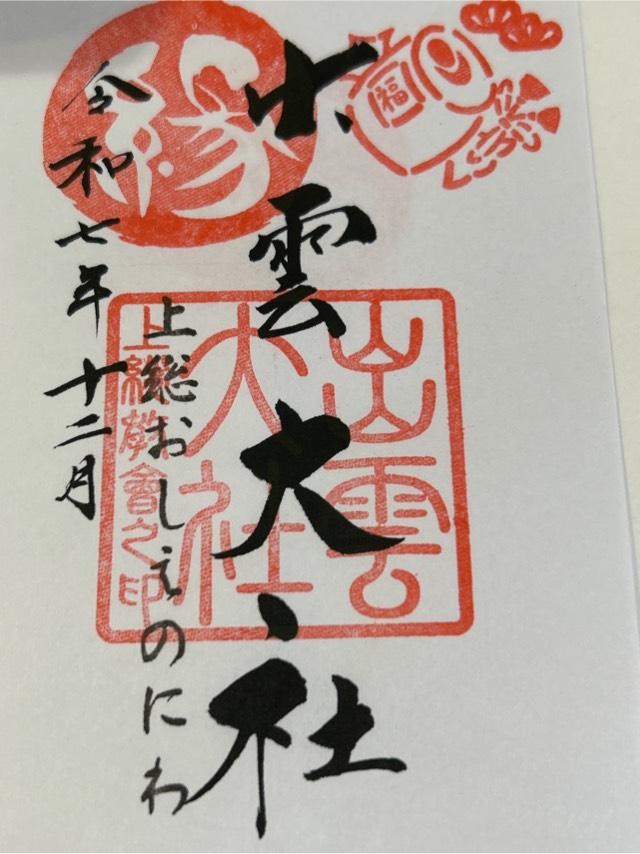 出雲大社
上総おしえのにわ
令和七年十二月
縁
福
出雲
大社
上総教會之印